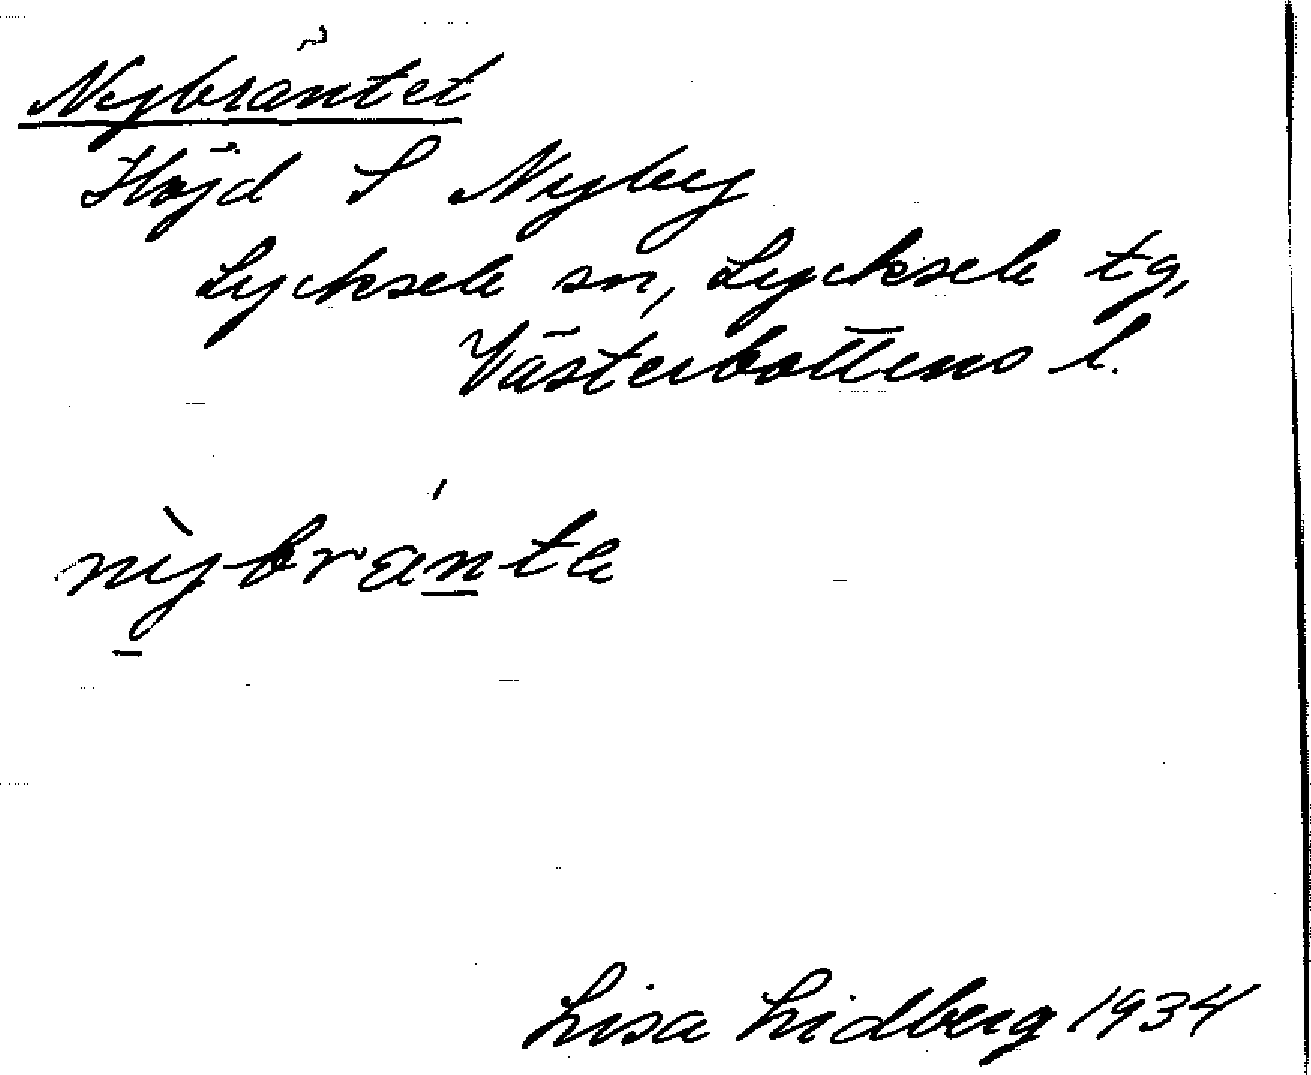 Nybräntet
Höjd S Nyby
Lycksele sn, Lycksele tg,
Västerbottens l.
nỳbränte
Lisa Lidberg 1934